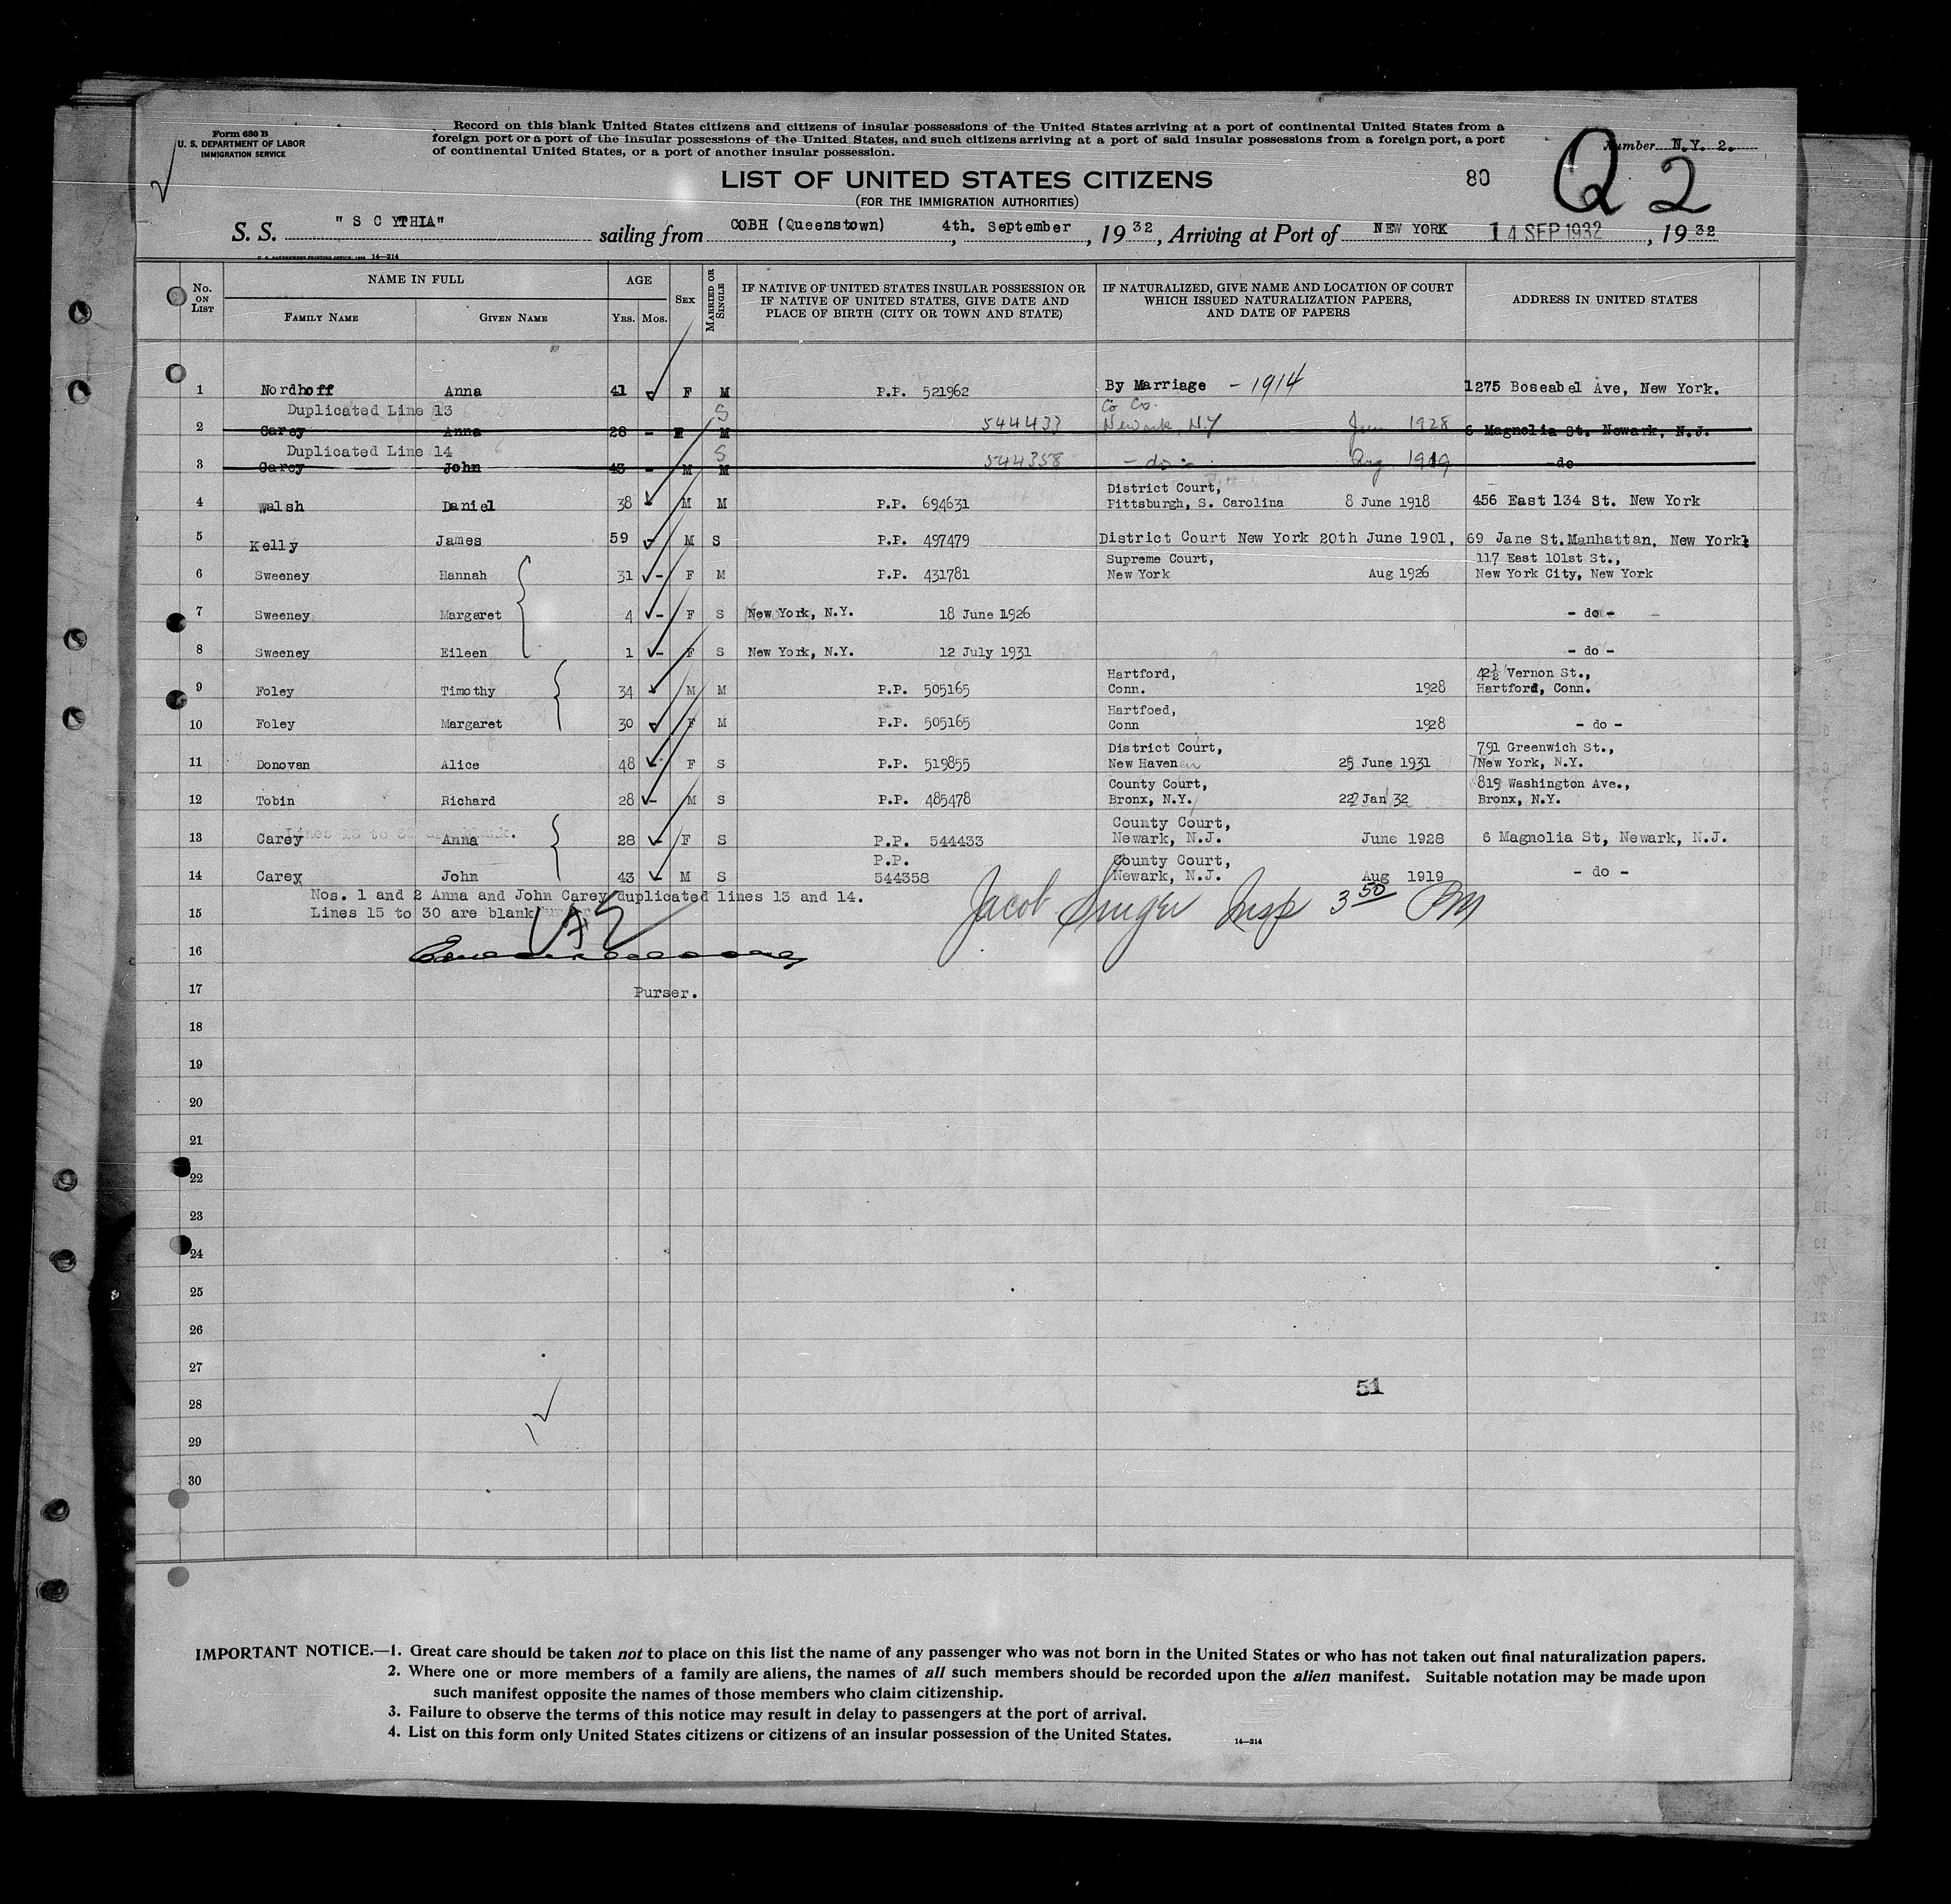 Form 630 B
U. S. DEPARTMENT OF LABOR
IMMIGRATION SERVICE
Record on this blank United States citizens and citizens of insular possessions of the United States arriving at a port of continental United States from a
foreign port or a port of the insular possessions of the United States, and such citizens arriving at a port of said insular possessions from a foreign port, a port
of continental United States, or a port of another insular possession.
Number N.Y. 2.
Q 2
80
LIST OF UNITED STATES CITIZENS
(FOR THE IMMIGRATION AUTHORITIES)
S. S. "S C YTHIA" sailing from COBH (Queenstown), 4th. September, 1932, Arriving at Port of NEW YORK 14 SEP 1932, 1932
14—214
No. ON LIST NAME IN FULL AGE SEX MARRIED OR SINGLE IF NATIVE OF UNITED STATES INSULAR POSSESSION OR IF NATIVE OF UNITED STATES, GIVE DATE AND PLACE OF BIRTH (CITY OR TOWN AND STATE) IF NATURALIZED, GIVE NAME AND LOCATION OF COURT WHICH ISSUED NATURALIZATION PAPERS, AND DATE OF PAPERS ADDRESS IN UNITED STATES
FAMILY NAME GIVEN NAME YRS. MOS.
1 Nordhoff Anna 41 F M P.P. 521962 By Marriage - 1914 1275 Boseabel Ave, New York.
Duplicated Line 13 S Co Co.
2 Carey Anna 28 - F M 544433 Newark, N.Y June 1928 6 Magnolia St. Newark, N.J.
Duplicated Line 14 S
3 Carey John 43 - M M 544358 - do - Aug 1919 -do
District Court,
4 Walsh Daniel 38 - M M P.P. 694631 Pittsburgh, S. Carolina 8 June 1918 456 East 134 St. New York
5 Kelly James 59 - M S P.P. 497479 District Court New York 20th June 1901, 69 Jane St.Manhattan, New York.
Supreme Court, 117 East 101st St.,
6 Sweeney Hannah 31 - F M P.P. 431781 New York Aug 1926 New York City, New York
7 Sweeney Margaret 4 - F S New York, N.Y. 18 June 1926 - do -
8 Sweeney Eileen 1 - F S New York, N.Y. 12 July 1931 - do -
Hartford, 42½ Vernon St.,
9 Foley Timothy 34 - M M P.P. 505165 Conn. 1928 Hartford, Conn.
Hartfoed,
10 Foley Margaret 30 - F M P.P. 505165 Conn 1928 - do -
District Court, 791 Greenwich St.,
11 Donovan Alice 48 - F S P.P. 519855 New Haven 25 June 1931 New York, N.Y.
County Court, 819 Washington Ave.,
12 Tobin Richard 28 - M S P.P. 485478 Bronx, N.Y. 22 Jan 32 Bronx, N.Y.
County Court,
13 Carey Anna 28 - F S P.P. 544433 Newark, N.J. June 1928 6 Magnolia St, Newark, N.J.
P.P. County Court,
14 Carey John 43 - M S 544358 Newark, N.J. Aug 1919 - do -
Nos. 1 and 2 Anna and John Carey duplicated lines 13 and 14.
15 Lines 15 to 30 are blank
Jacob Singer Insp 3 50 PM
16
17 Purser.
18
19
20
21
22
23
24
25
26
27
51
28
29
30
IMPORTANT NOTICE.—1. Great care should be taken not to place on this list the name of any passenger who was not born in the United States or who has not taken out final naturalization papers.
2. Where one or more members of a family are aliens, the names of all such members should be recorded upon the alien manifest. Suitable notation may be made upon
such manifest opposite the names of those members who claim citizenship.
3. Failure to observe the terms of this notice may result in delay to passengers at the port of arrival.
4. List on this form only United States citizens or citizens of an insular possession of the United States.
14—214